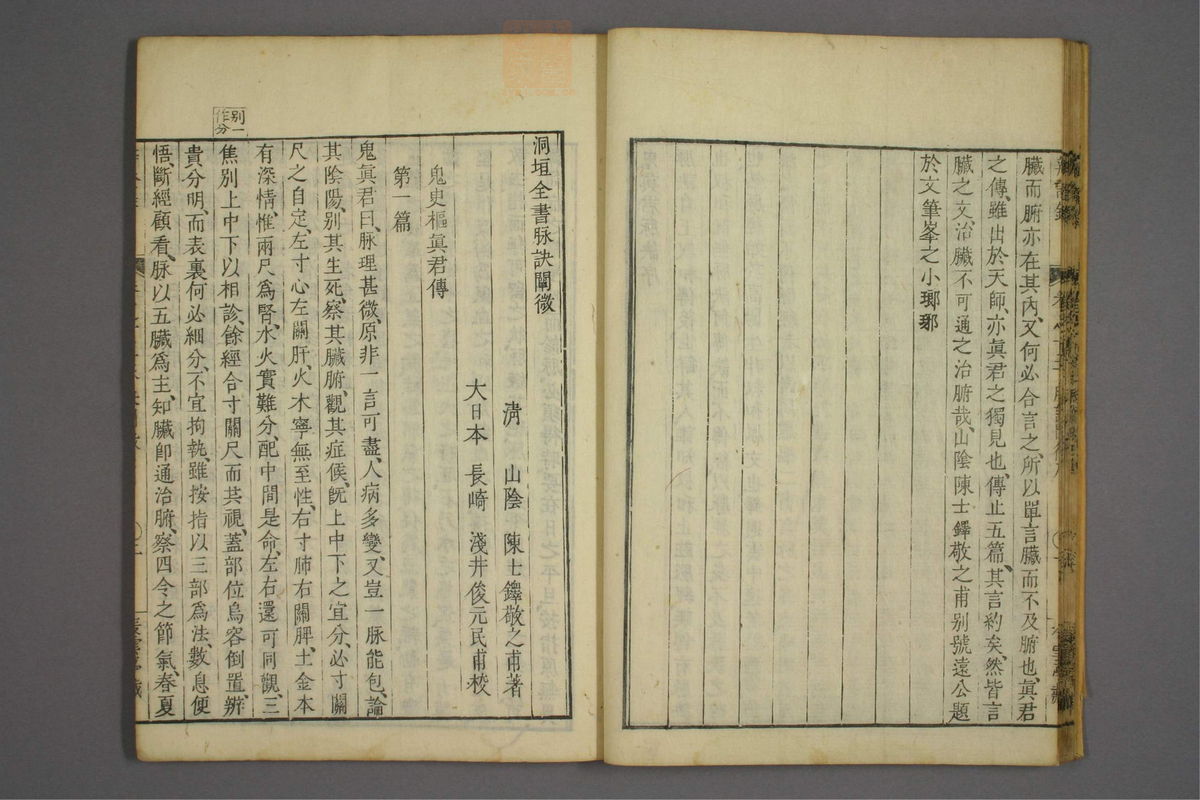 臟而腑亦在其內、又何必合言之、所以單言臟而不及腑也、眞君
之傳、雖出於天師、亦眞君之獨見也、傳止五篇、其言約矣、然皆言
臟之文、治臟不可通之治腑哉、山陰陳士鐸敬之甫别號遠公題
於文筆峯之小瑯琊
洞垣全書脉訣闡微
清 山陰 陳士鐸敬之甫著
大日本 長崎 淺井俊元民甫校
鬼史樞眞君傳
第一篇
鬼眞君曰、脉理甚微、原非一言可盡、人病多變、又豈一脉能包、論
其陰陽、別其生死、察其臟腑、觀其症候、旣上中下之宜分、必寸關
尺之自定、左寸心左關肝、火木寧無至性、右寸肺右關脾、土金本
有深情、惟兩尺爲腎、水火實難分、配中間是命、左右還可同觀、三
焦別上中下以相診、餘經合寸關尺而共視、蓋部位烏容倒置、辨
貴分明、而表裏何必細分、不宜拘執、雖按指以三部爲法、數息便
悟、斷經顧看、脉以五臟爲主、知臟卽通治腑、察四令之節氣、春夏
别一
作分